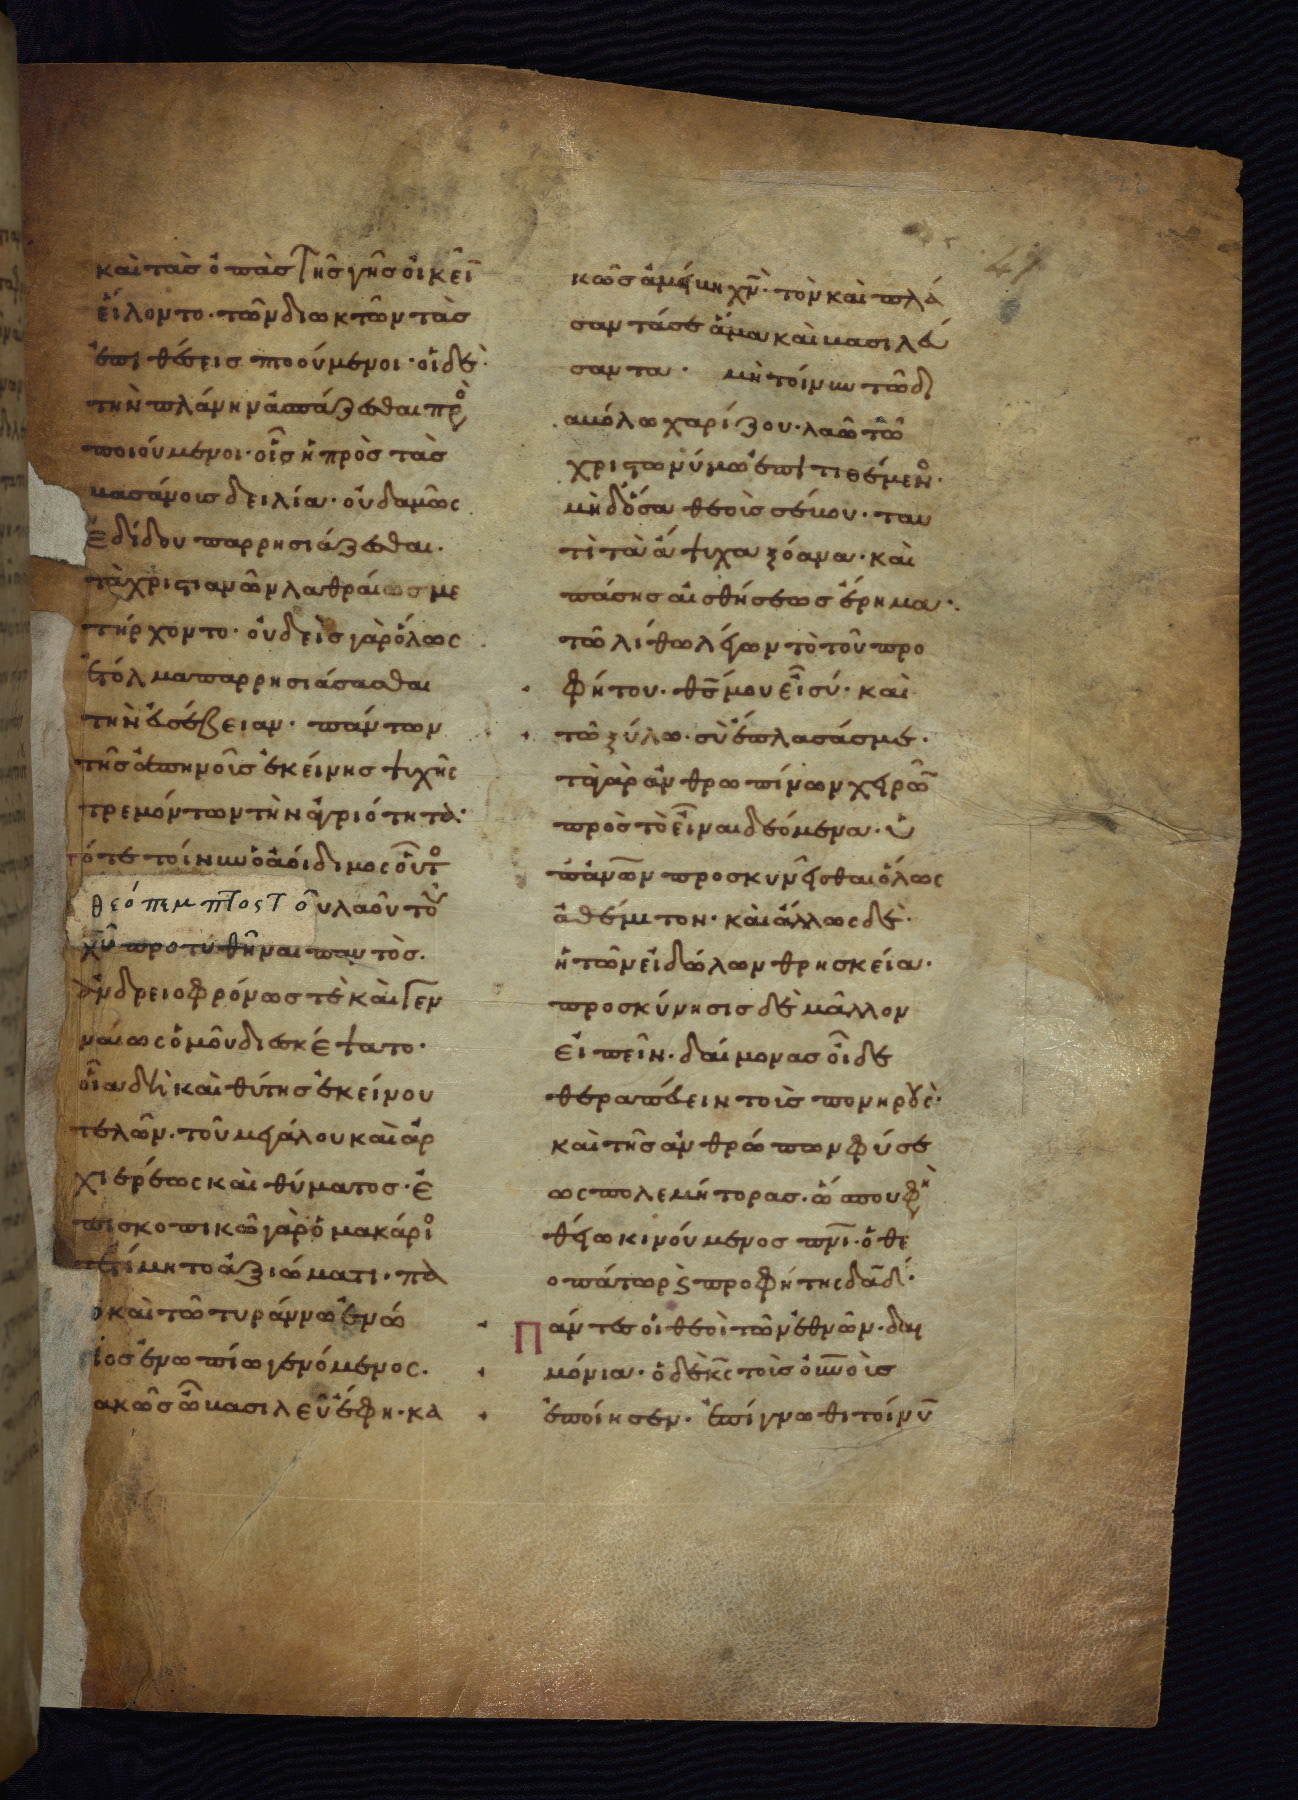 καὶ τὰς ὀπὰς τῆς γῆς οἰκεῖν
εἵλοντο· τῶν διωκτῶν τὰς
ἐπιθέσεις πτοούμενοι· οἱ δὲ
τὴν πλάνην ἀσπάζεσθαι προσ
ποιούμενοι· οἷς ἡ πρὸς τὰς
βασάνοις δειλία· οὐδαμῶς
ἐδίδου παρρησιάζεσθαι·
τὰ χριστιανῶν λαθραίως με
τήρχοντο· οὐδεὶς γὰρ ὅλως
ἐτόλμα παρρησιάσασθαι
τὴν εὐσέβειαν· πάντων
τῆς ἀπηνοῦς ἐκείνης ψυχῆς
τρεμόντων τὴν ἀγριότητα·
τότε τοίνυν ὁ ἀοίδιμος οὗτος
θεόπεμπτος τοῦ λαοῦ τοῦ
χῦ προτυθῆναι παντὸς·
ἀνδρειοφρόνως τὲ καὶ γεν
ναίως ὁμοῦ διεσκέψατο·
οἷα δὴ καὶ θύτης ἐκείνου
τελῶν· τοῦ μεγάλου καὶ ἀρ
χιερέως καὶ θύματος· ἐ
πισκοπικῶ γὰρ ὁ μακάριος
τετίμητο ἀξιώματι· πα
ο καὶ τῶ τυράννω ἐνώ
ιος ἐνωπίω γενόμενος·
ακῶς ὦ βασιλεῦ ἔφη· κα
κῶς ἀμείβη χν· τὸν καὶ πλά
σαντά σε ἅμα καὶ βασιλεύ
σαντα· μὴ τοίνυν τῶ δι
αβόλω χαρίζου· λαῶ τῶ
χριστωνύμω ἐπιτιθέμενος·
μὴ δόξα θεοῖς σέβου· ταυ
τὶ τὰ ἄψυχα ξόανα· καὶ
πάσης αἰσθήσεως ἔρημα·
τῶ λίθω λέγων τὸ τοῦ προ
φήτου· θς μου εἶ σύ· καὶ
τῶ ξύλω· σὺ ἔπλασάς με·
τὰ γὰρ ἀνθρωπίνων χειρῶν
πρὸς τὸ εἶναι δεόμενα· ὑ
π' ἀνῶν προσκυνεῖσθαι ὅλως
ἀθέμιτον· καὶ ἄλλως δὲ·
ἡ τῶν εἰδώλων θρησκεία·
προσκύνησις δὲ μᾶλλον
εἰπεῖν· δαίμονας οἶδε
θεραπεύειν τοὺς πονηρούς·
καὶ τῆς ἀνθρώπων φύσε
ως πολεμήτορας· ὥς που φη
θείω κινούμενος πνι· ὁ θε
οπάτωρ καὶ προφήτης δαδ·
Πάντες οἱ θεοὶ τῶν ἐθνῶν· δαι
μόνια· ὁ δὲ κς τοὺς οὐνοὺς
ἐποίησεν· ἐπίγνωθι τοίνυν